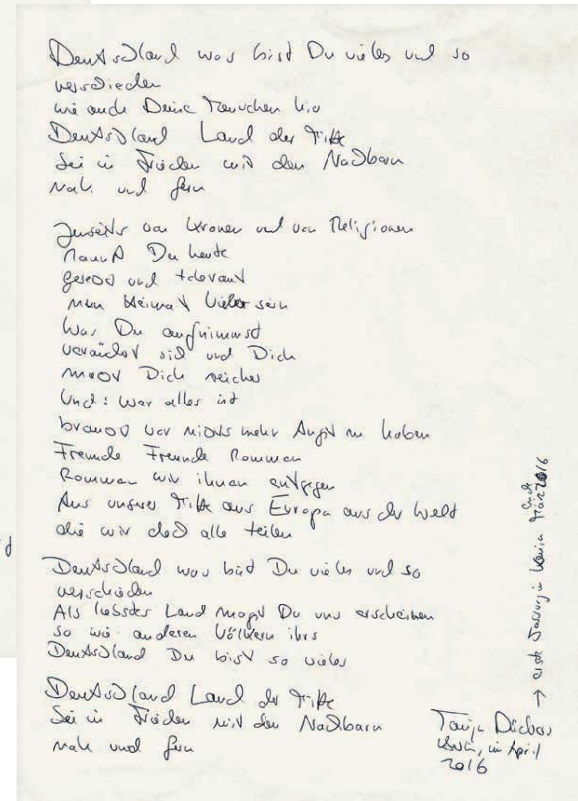 Deutschland was bist Du vieles und so
verschieden
wie auch Deine Menschen hier
Deutschland Land der Mitte
Sei in Frieden mit den Nachbarn
nah und fern
Jenseits von Kronen und von Religionen
kannst Du heute
gerecht und tolerant
mein Heimat vieler sein
Was Du aufnimmst
verändert sich und Dich
macht Dich reicher
Und: wer alles ist
braucht vor nichts mehr Angst zu haben
Fremde Freunde kommen
kommen wir ihnen entgegen
Aus unserer Mitte aus Europa aus der Welt
die wir doch alle teilen
Deutschland was bist Du vieles und so
verschieden
Als liebstes Land magst Du uns erscheinen
so wie anderen Völkern ihrs
Deutschland Du bist so vieles
Deutschland Land der Mitte
Sei in Frieden mit den Nachbarn
nah und fern
Tanja Dückers
Berlin, im April
2016
→ erste Fassung in Ende März 2016